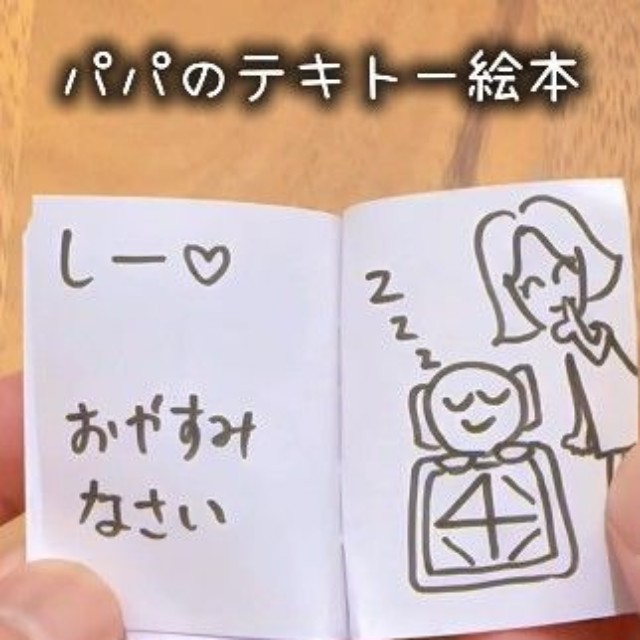 パパのテキトー絵本
しー♡
おやすみ
なさい
z
z
z
4